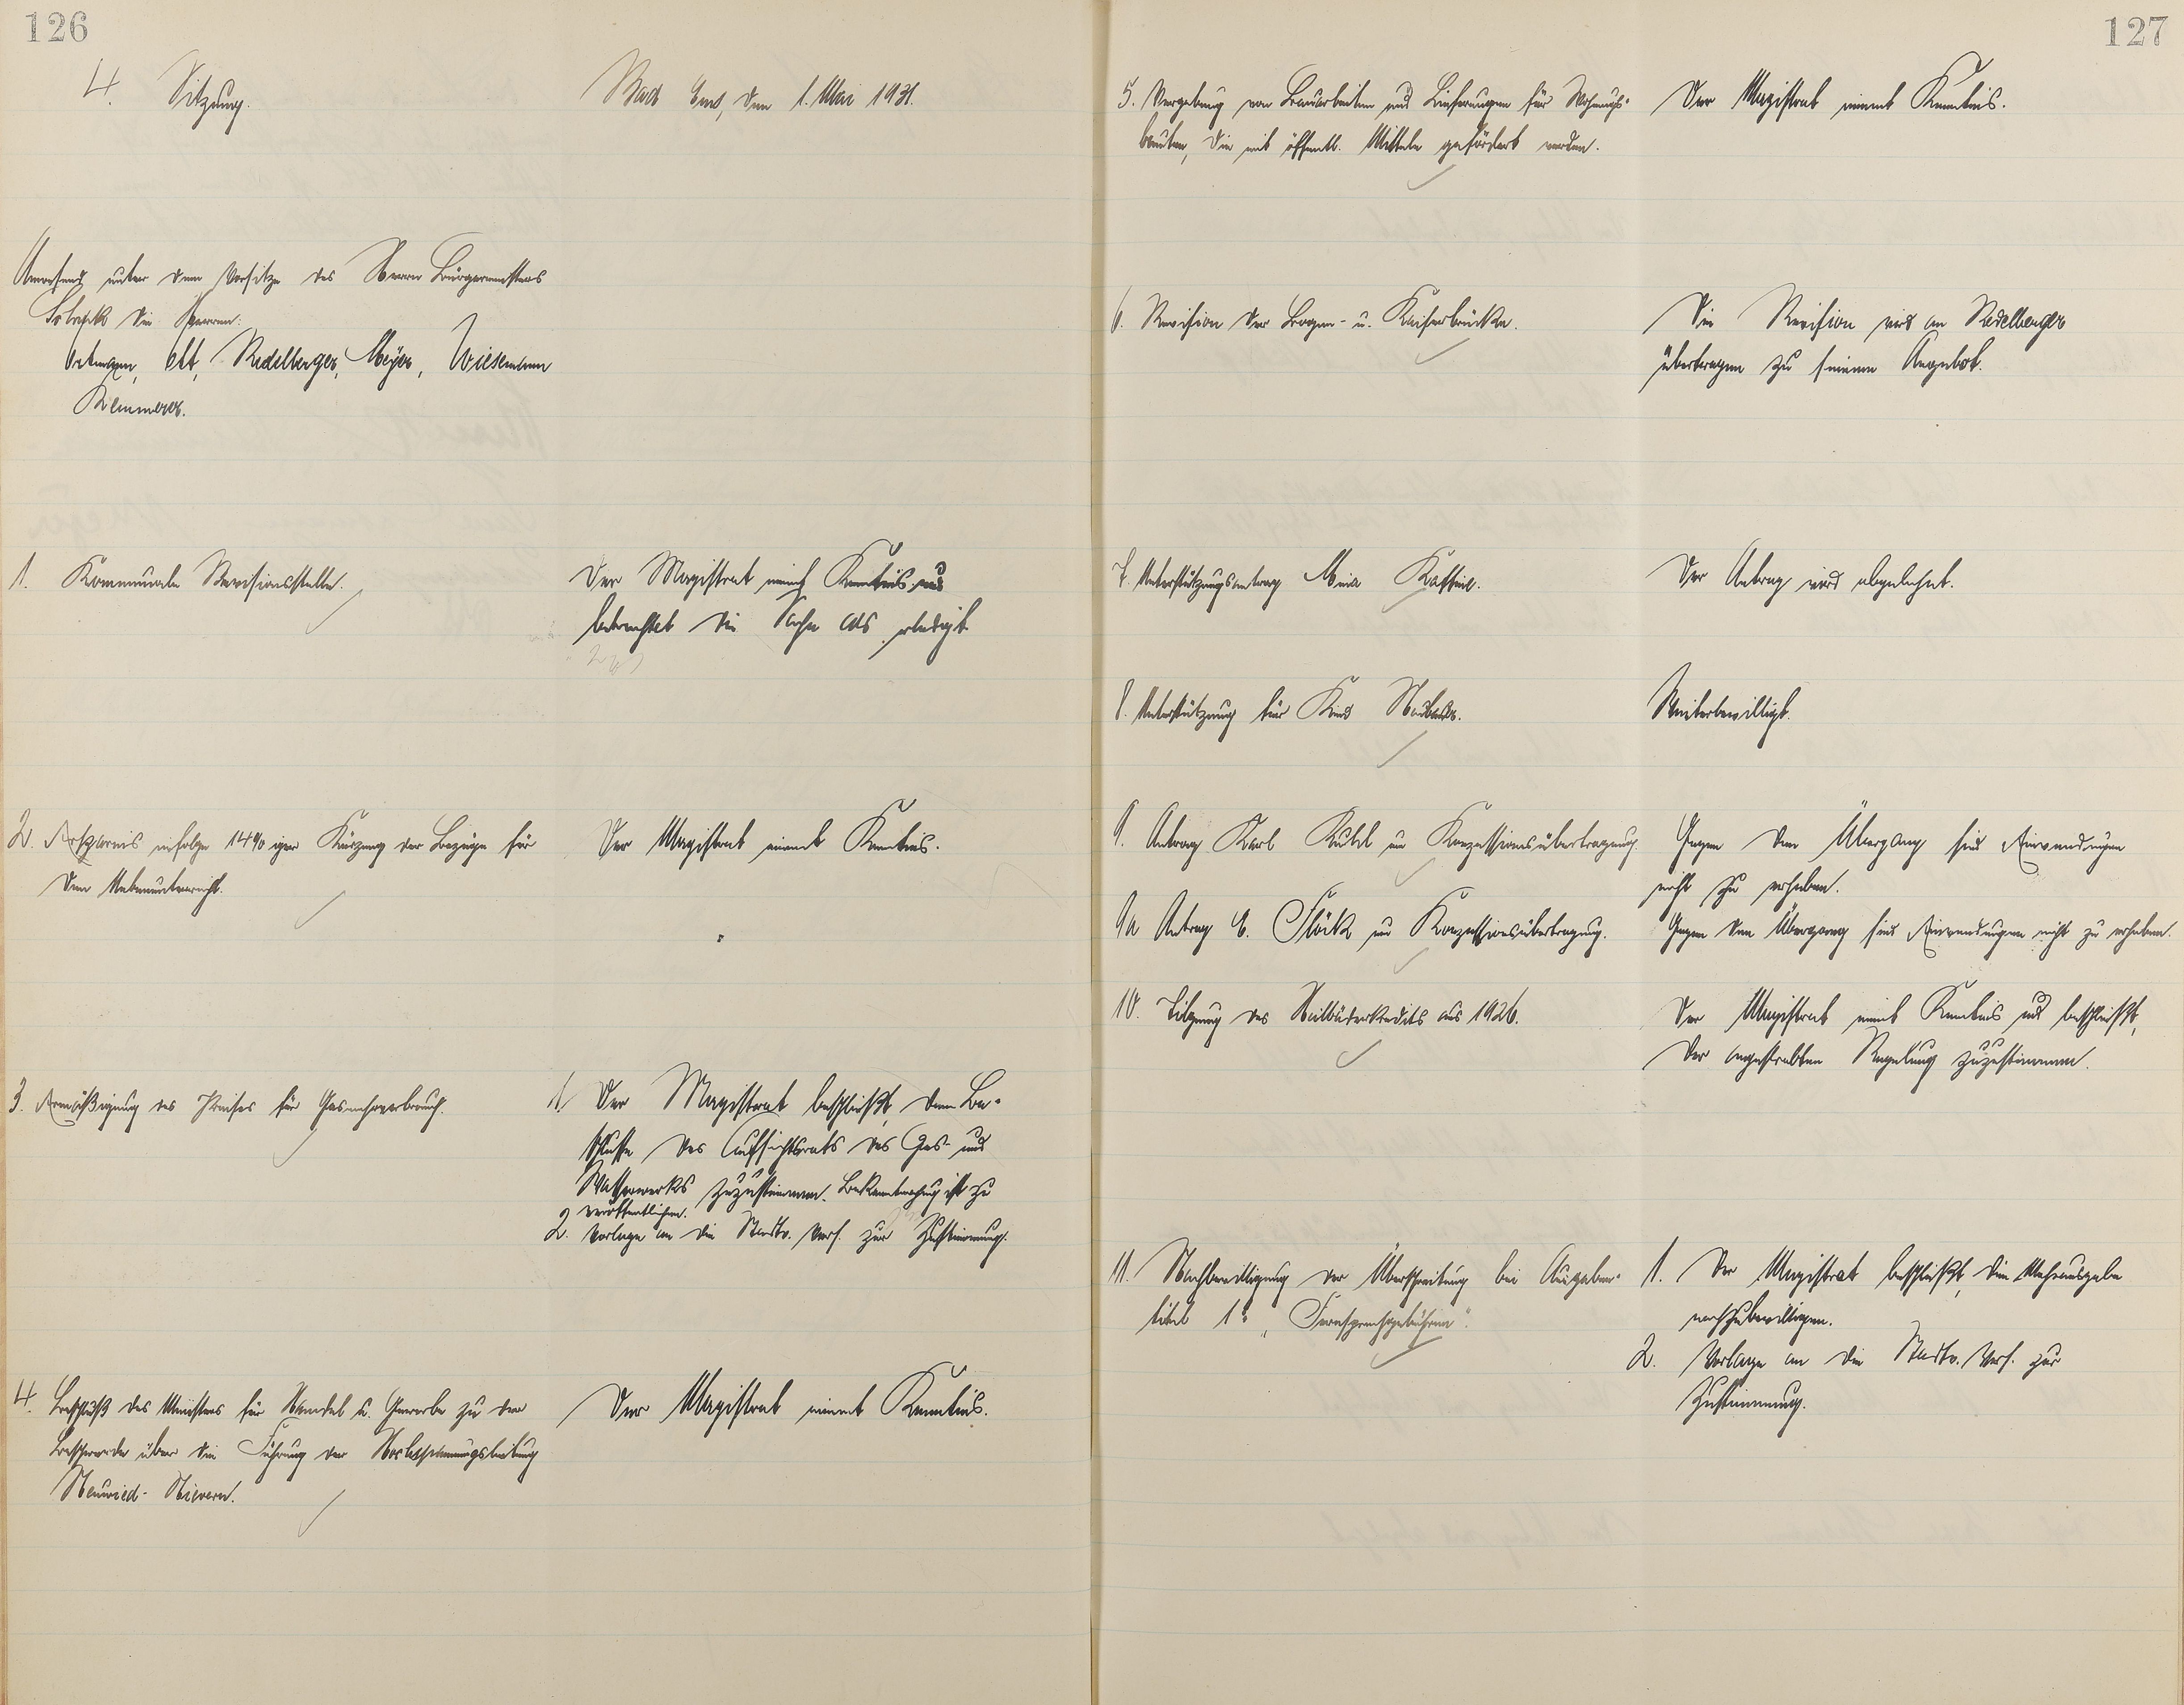 126
4. Sitzung.
Bad Ems, den 1. Mai 1931.
Anwesend unter dem Vorsitze des Herrn Bürgermeisters
die Herren:
Ortmann, Ott, Redelberger, Meyer, Wiesemann
Kemmerer.
1. Kommunale Revisionsstelle.
Der Magistrat nimmt Kenntnis und
betrachtet die Sache als erledigt.
2. Ersparnis infolge 14%iger Kürzung der Bezüge für
den Nebenunterricht.
Der Magistrat nimmt Kenntnis.
3. Ermäßigung des Preises für Gasmehrverbrauch.
1. Der Magistrat beschließt, dem Be-
schlusse des Aufsichtsrats des Gas- und
Wasserwerks zuzustimmen. Bekanntmachung ist zu
veröffentlichen.
2. Vorlage an die Stadtv. Vers. zur Zustimmung.
4. Beschluß des Ministers für Handel u. Gewerbe zu der
Beschwerde über die Führung der Hochspannungsleitung
Neuwied-Nievern.
Der Magistrat nimmt Kenntnis.
127
5. Vergebung von Bauarbeiten und Lieferungen für Wohnungs-
bauten, die mit öffentl. Mitteln gefördert werden.
Der Magistrat nimmt Kenntnis.
6. Revision der Bogen- u. Kaiserbrücke.
Die Revision wird an Redelberger
übertragen zu seinem Angebot.
7. Unterstützungsantrag Mina
Der Antrag wird abgelehnt.
8. Unterstützung für Kind
Weiterbewilligt.
9. Antrag Karl um Konzessionsübertragung.
Gegen den Übergang sind Einwendungen
nicht zu erheben.
9a Antrag E. Flöck um Konzessionsübertragung.
Gegen den Übergang sind Einwendungen nicht zu erheben.
10. Tilgung des Heilbäderkredits aus 1926.
Der Magistrat nimmt Kenntnis und beschließt,
der angestrebten Regelung zuzustimmen.
11. Nachbewilligung der Überschreitung bei Ausgaben-
titel 1 "Fernsprechgebühren".
1. Der Magistrat beschließt, die Mehrausgabe
nachzubewilligen.
2. Vorlage an die Stadtv. Vers. zur
Zustimmung.